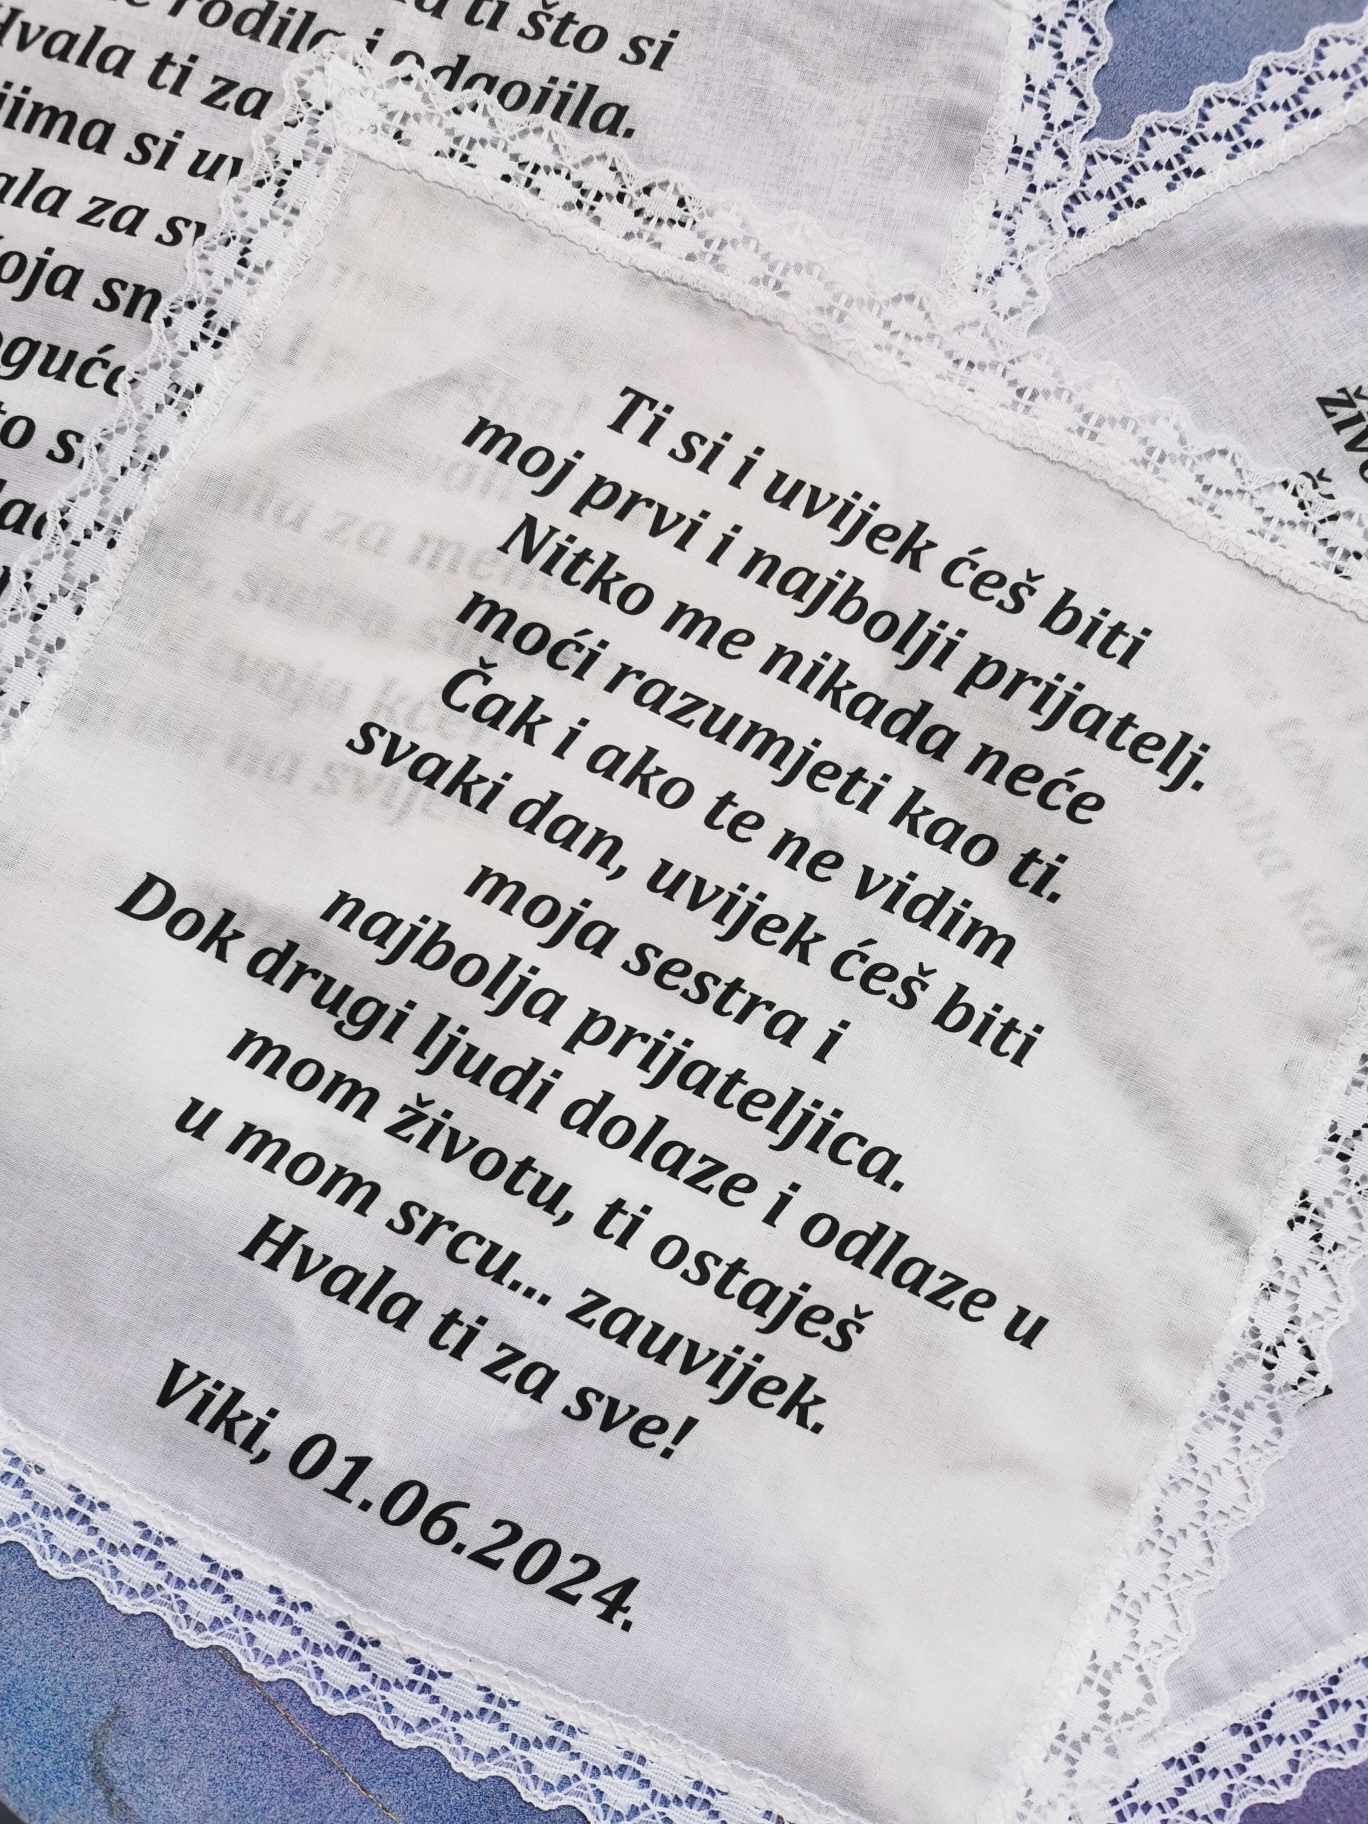 ti što si
rodila i odgojila.
Hvala ti za
si
za
oja
Ti si i uvijek ćeš biti
moj prvi i najbolji prijatelj.
Nitko me nikada neće
moći razumjeti kao ti.
Čak i ako te ne vidim
svaki dan, uvijek ćeš biti
moja sestra i
najbolja prijateljica.
Dok drugi ljudi dolaze i odlaze u
mom životu, ti ostaješ
u mom srcu... zauvijek.
Hvala ti za sve!
Viki, 01.06.2024.